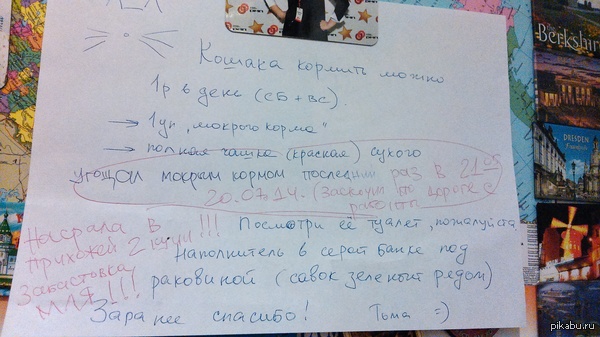 Кошака кормить можно
1р в день (СБ + ВС).
→ 1 уп „мокрого корма"
→ полная чашка (красная) сухого
угощал мокрым кормом последний раз в 21:05
20.07.14. (заскочил по дороге с
работы
Насрала в
прихожей 2 кучи!!!
Забастовка,
мля!!!
Посмотри её туалет, пожалуйста.
Наполнитель в серой банке под
раковиной (савок зеленый рядом)
Заранее спасибо! Тьма =)
Berkshire
DRESDEN
pikabu.ru